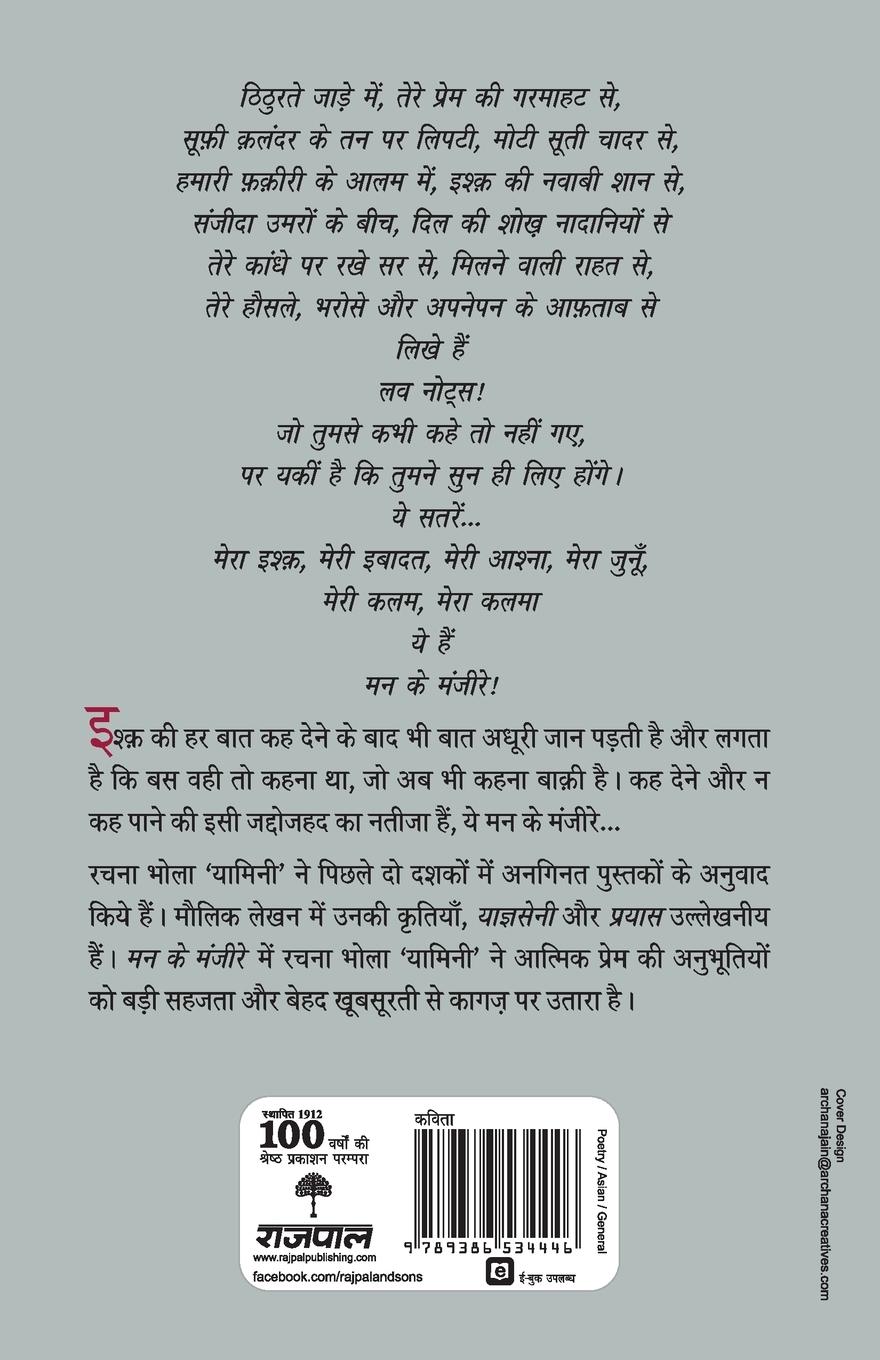 ठिठुरते जाड़े में, तेरे प्रेम की गरमाहट से,
सूफ़ी क़लंदर के तन पर लिपटी, मोटी सूती चादर से,
हमारी फ़क़ीरी के आलम में, इश्क़ की नवाबी शान से,
संजीदा उमरों के बीच, दिल की शोख़ नादानियों से
तेरे कांधे पर रखे सर से, मिलने वाली राहत से,
तेरे हौसले, भरोसे और अपनेपन के आफ़ताब से
लिखे हैं
लव नोट्स!
जो तुमसे कभी कहे तो नहीं गए,
पर यकीं है कि तुमने सुन ही लिए होंगे।
ये सतरें...
मेरा इश्क़, मेरी इबादत, मेरी आश्ना, मेरा जुनूँ,
मेरी कलम, मेरा कलमा
ये हैं
मन के मंजीरे!
इश्क़ की हर बात कह देने के बाद भी बात अधूरी जान पड़ती है और लगता
है कि बस वही तो कहना था, जो अब भी कहना बाक़ी है। कह देने और न
कह पाने की इसी जद्दोजहद का नतीजा हैं, ये मन के मंजीरे...
रचना भोला ‘यामिनी’ ने पिछले दो दशकों में अनगिनत पुस्तकों के अनुवाद
किये हैं। मौलिक लेखन में उनकी कृतियाँ, याज्ञसेनी और प्रयास उल्लेखनीय
हैं। मन के मंजीरे में रचना भोला ‘यामिनी’ ने आत्मिक प्रेम की अनुभूतियों
को बड़ी सहजता और बेहद खूबसूरती से कागज़ पर उतारा है।
स्थापित 1912
100 वर्षों की
श्रेष्ठ प्रकाशन परम्परा
राजपाल
www.rajpalpublishing.com
facebook.com/rajpalandsons
कविता
9 789386 534446
Poetry / Asian / General
e ई-बुक उपलब्ध
Cover Design
archanajain@archanacreatives.com